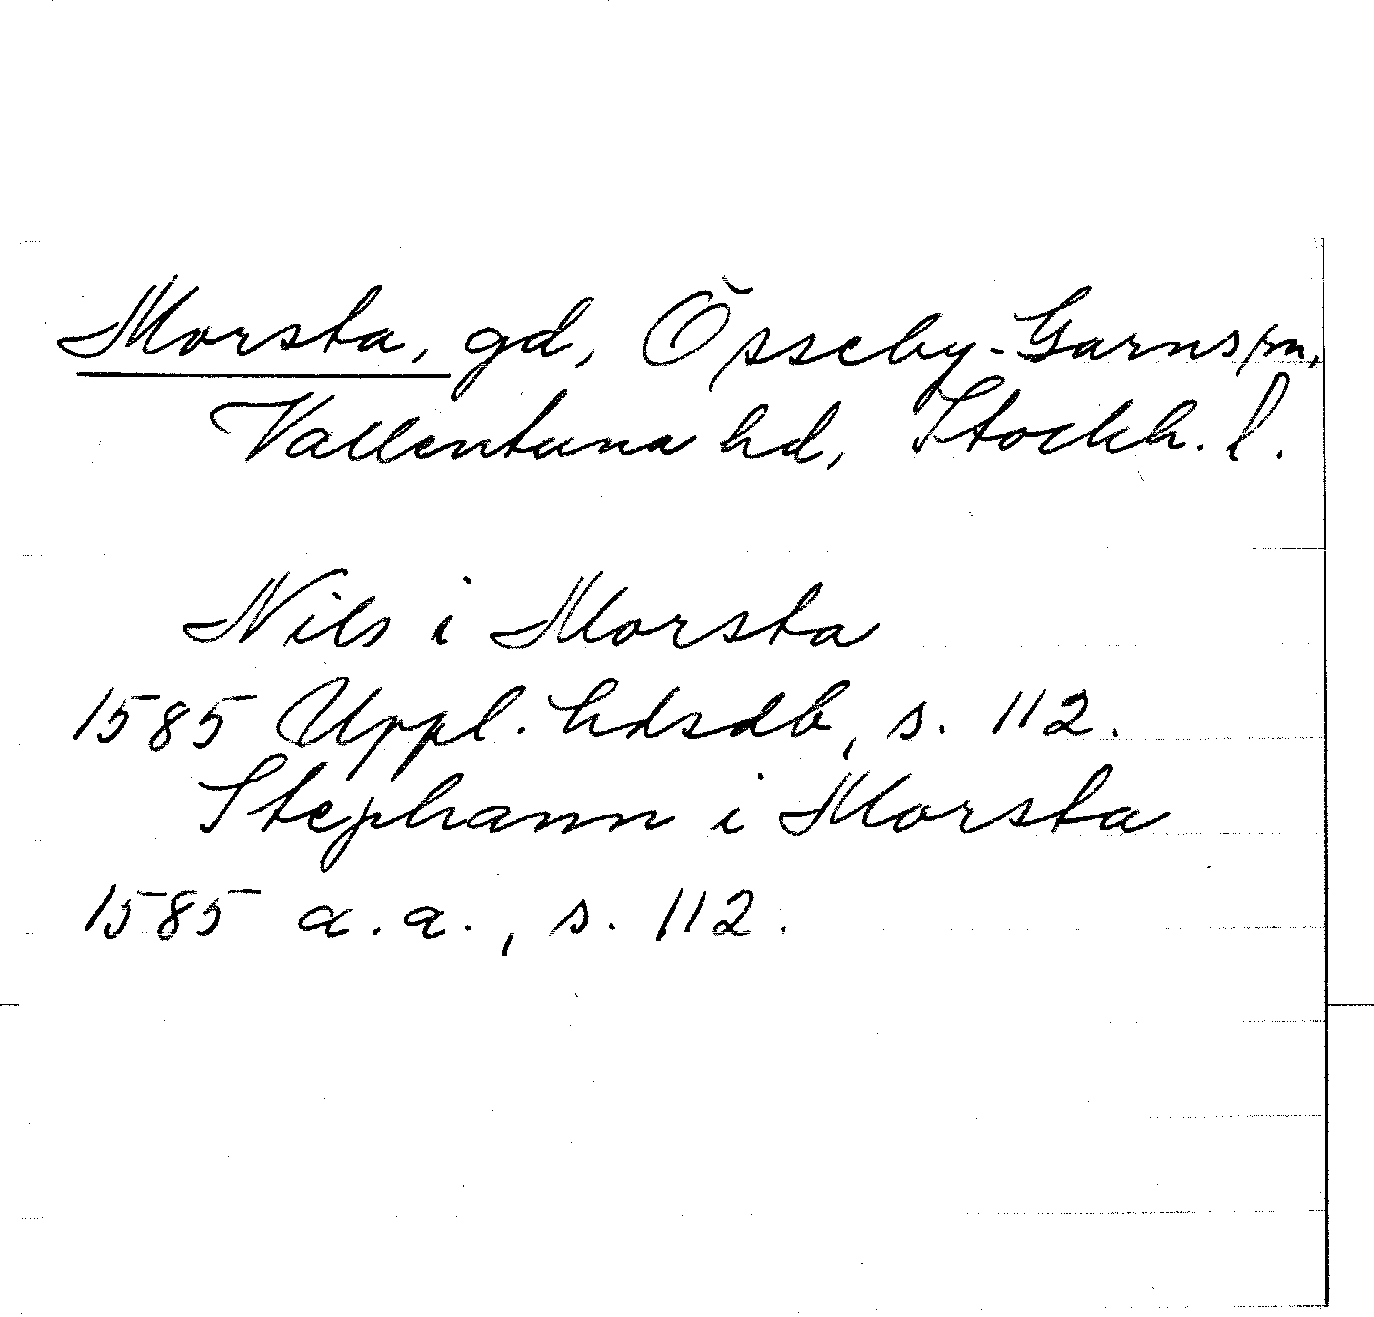 Morsta, gd, Össeby-Garns sn,
Vallentuna hd, Stockh. l.
Nils i Morsta
1585 Uppl. hdsdb, s. 112.
Stephann i Morsta
1585 a.a., s. 112.